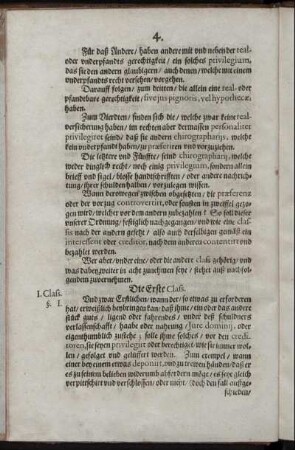 4.
Für daß Andere/ haben andere mit vnd neben der real-
oder vnderpfandts gerechtigkeit/ ein solches privilegium,
das sie den andern glaubigern/ auch denen/ welche mit einem
vnderpfandts recht versehen/ vorgehen.
Darauff folgen/ zum dritten/ die allein eine real- oder
pfandtbare gerechtigkeit/ sive jus pignoris, vel hypothecæ,
haben.
Zum Vierdten/ finden sich die/ welche zwar keine real-
versicherung haben/ im rechten aber dermassen personaliter
privilegiret seind/ daß sie andern chirographarijs, welchen
kein vnderpfandt haben/ zu præferiren vnd vorzuziehen.
Die letztere vnd Fünffte/ seind chirographarij, welche
weder dinglich recht/ noch einig privilegium, sondern allein
brieff vnd sigel/ blosse handtschrifften/ oder andere nachrich-
tung/ ihrer schulden halben/ vorzulegen wissen.
Wann derowegen zwischen obgesetzten/ die præferenz
oder der vorzug controvertirt, oder sonsten in zweiffel gezo-
gen wird/ welcher vor dem andern zubezahlen? So soll dieser
vnserer Ordnung/ festiglich nachgegangen/ vnd wie eine clas-
sis nach der andern gesetzt/ also auch derselbigen gemäß ein
interessent oder creditor, nach dem anderen contentirt vnd
bezahlt werden.
Wer aber/ vnder eine/ oder die andere class gehörig/ vnd
was dabey weiter in acht zunehmen seye/ stehet auß nachfol-
gendem zuvernehmen.
Die Erste Class.
I. Class.
§. I.
Vnd zwar Erstlichen/ wann der/ so etwas zu erforderen
hat/ erweißlich beybringen kan/ daß ihme/ ein oder das andere
stück guts/ ligend oder fahrendes/ vnder deß schuldners
verlassenschafft/ haabe oder nahrung/ jure dominij, oder
eigenthumblich zustehe; solle ihme solches/ vor den credi-
toren, sie seyen privilegirt oder berechtiget/ wie sie immer wöl-
len/ gefolget vnd gelüffert werden. Zum exempel/ wann
einer bey einem etwas deponirt, vnd zu trewen händen/ daß er
es zu seinem belieben widerumb abfordern möge/ es seye gleich
verpittschirt vnd verschlossen/ oder nicht/ (doch den fall außge-
schieden/